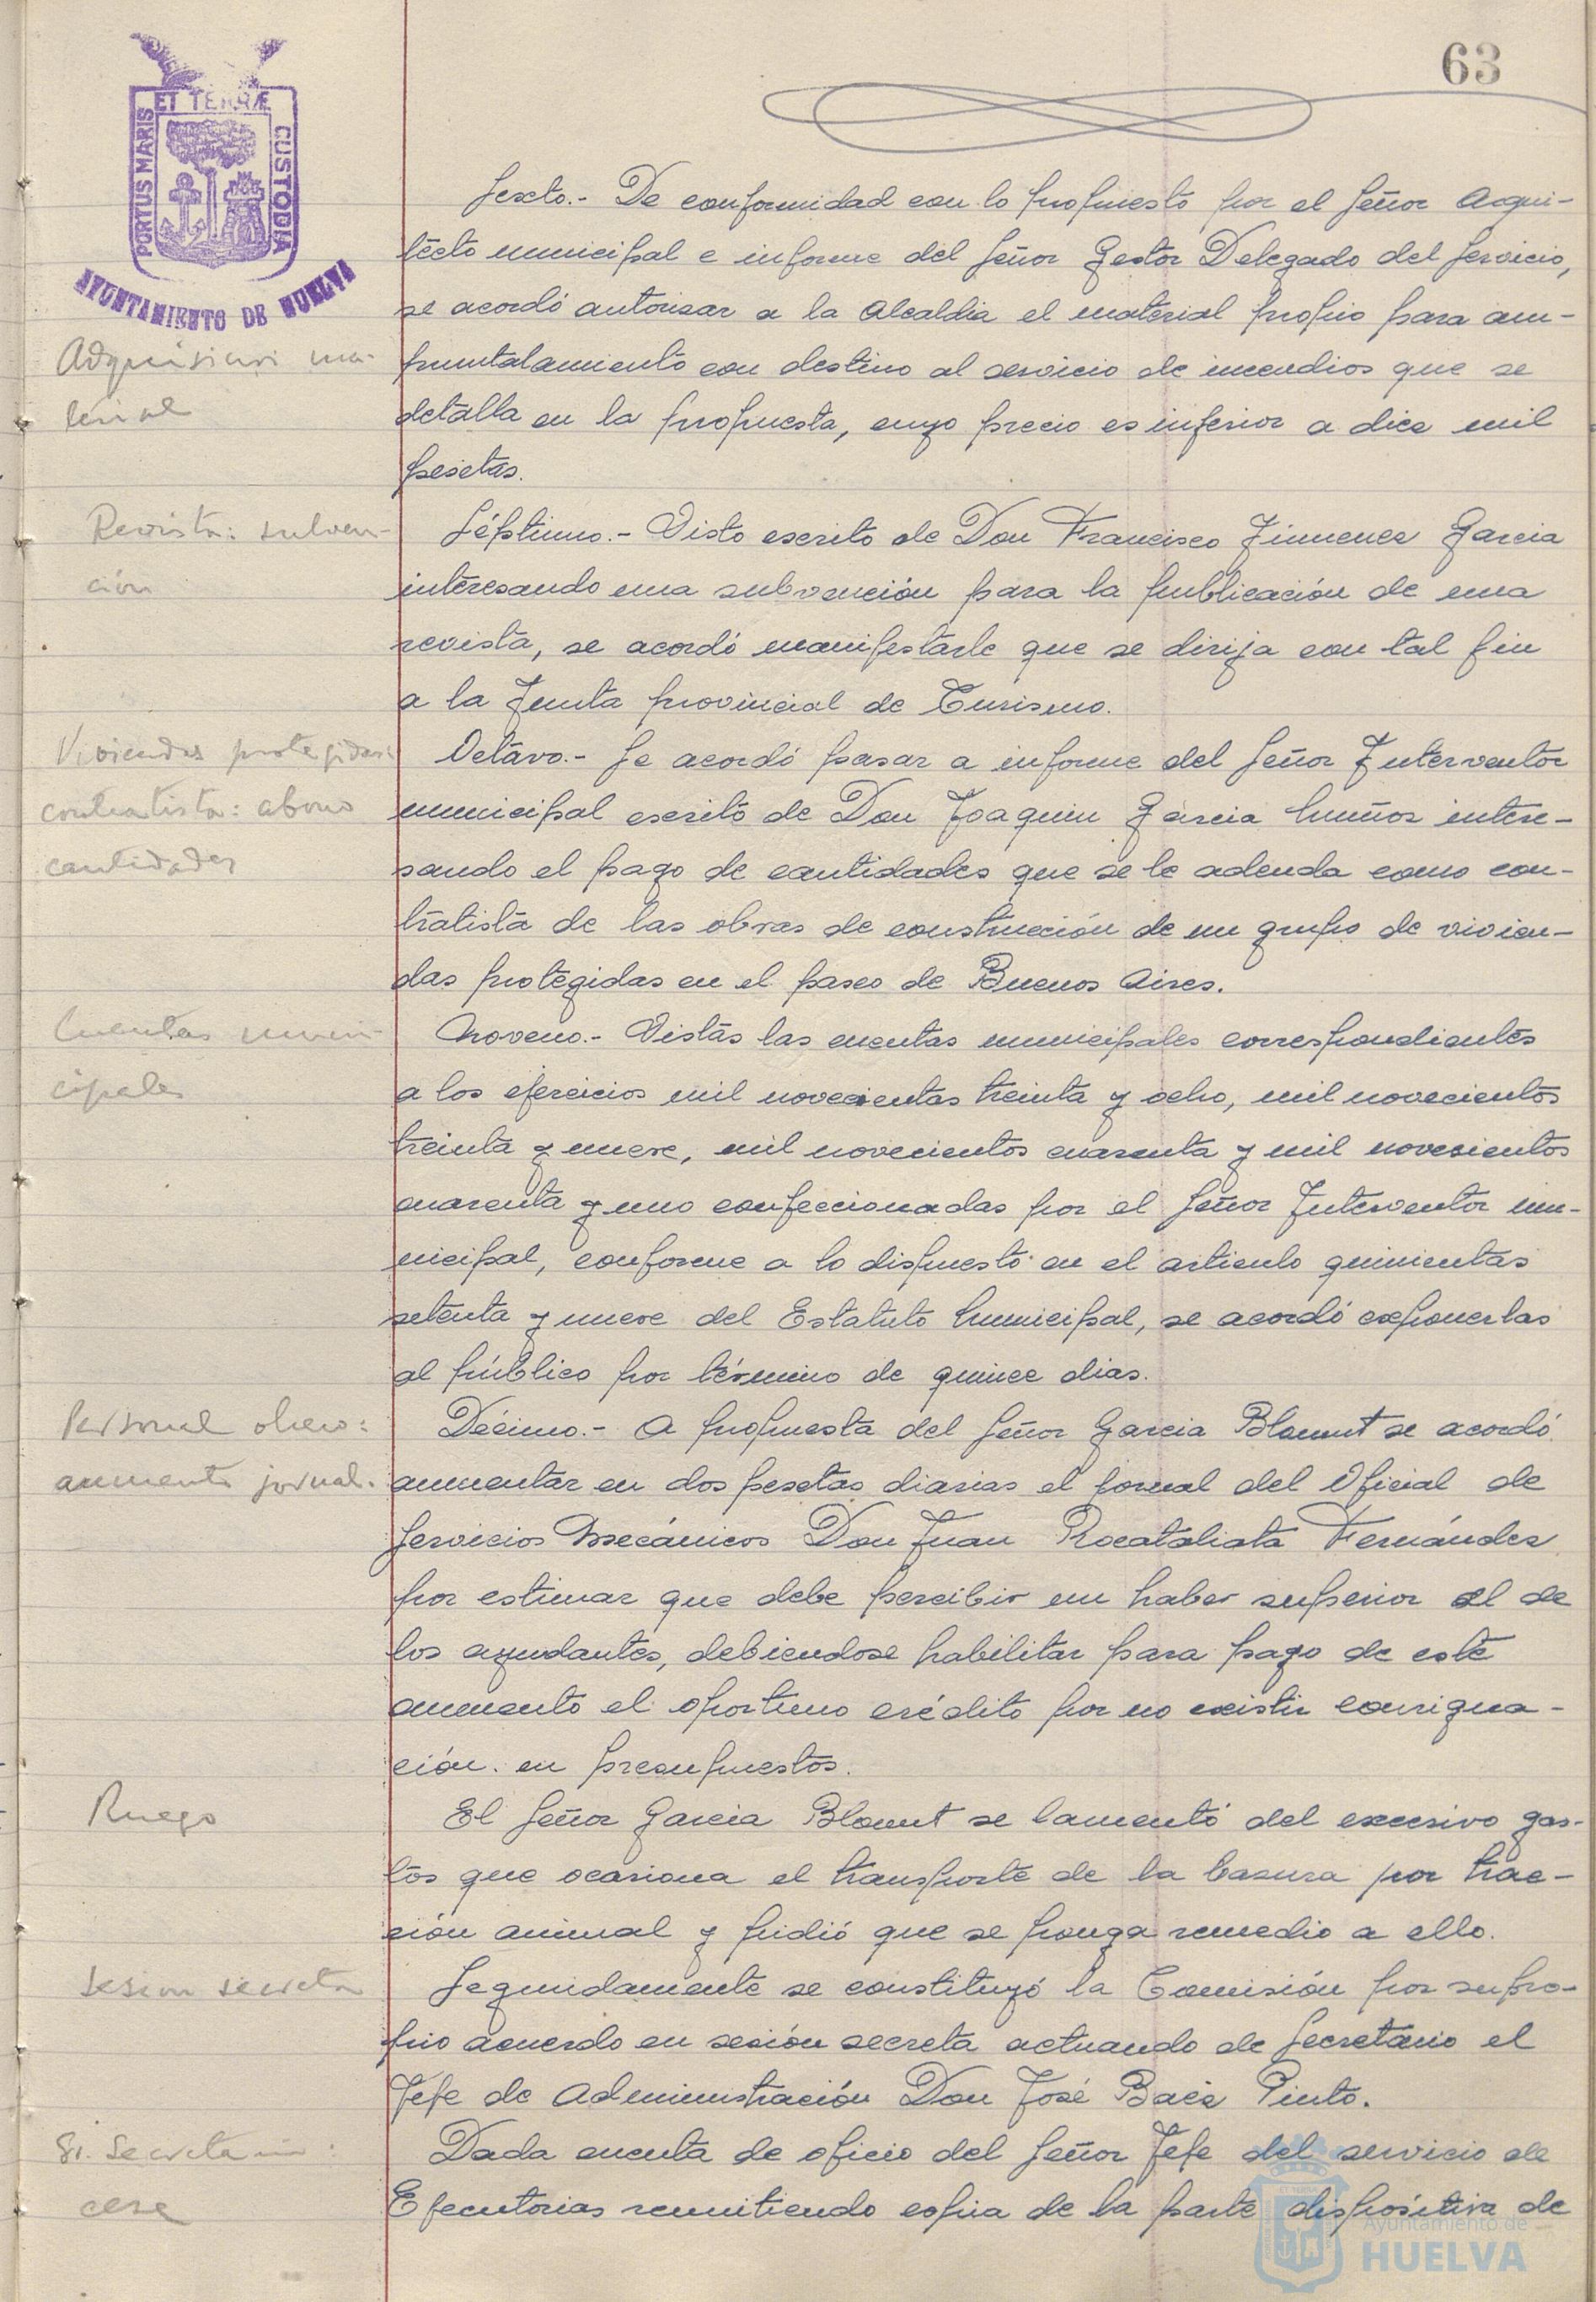 63
PORTUS MARIS ET TERRÆ CUSTODIA
AYUNTAMIENTO DE HUELVA
Sexto.- De conformidad con lo propuesto por el Señor Arqui-
tecto municipal e informe del Señor Gestor Delegado del Servicio,
se acordó autorisar a la Alcaldia el material propio para am-
Adquisicion ma-
terial
puntalamiento con destino al servicio de incendios que se
detalla en la propuesta, cuyo precio es inferior a diez mil
pesetas.
Revista: subven-
ción
Séptimo.- Visto escrito de Don Francisco Jimenez Garcia
interesando una subvención para la publicación de una
revista, se acordó manifestarle que se dirija con tal fin
a la Junta provincial de Turismo.
Viviendas protegidas:
contratista: abono
cantidades
Octavo.- Se acordó pasar a informe del Señor Interventor
municipal escrito de Don Joaquin Garcia Muñoz intere-
sando el pago de cantidades que se le adeuda como con-
tratista de las obras de construcción de un grupo de vivien-
das protegidas en el paseo de Buenos Aires.
Cuentas muni-
cipales
Noveno.- Vistas las cuentas municipales correspondientes
a los ejercicios mil novecientas treinta y ocho, mil novecientos
treinta y nueve, mil novecientos cuarenta y mil novecientos
cuarenta y uno confeccionadas por el Señor Interventor mu-
nicipal, conforme a lo dispuesto en el articulo quinientas
setenta y nueve del Estatuto Municipal, se acordó exponerlas
al público por término de quince dias.
Personal obrero:
aumento jornal.
Décimo.- A propuesta del Señor Garcia Blounut se acordó
aumentar en dos pesetas diarias el jornal del Oficial de
Servicios Mecánicos Don Juan Rocataliata Fernández
por estimar que debe percibir un haber superior al de
los ayudantes, debiendose habilitar para pago de este
aumento el oportuno crédito por no existir consigna-
ción. en presupuestos.
Ruego
El Señor Garcia Blounut se lamentó del excesivo gas-
tos que ocasiona el transporte de la basura por trac-
ción animal y pidió que se ponga remedio a ello.
Sesion secreta
Seguidamente se constituyó la Comisión por su pro-
pio acuerdo en sesión secreta actuando de Secretario el
Jefe de Administración Don José Baez Pinto.
Sr. Secretario:
cese
Dada cuenta de oficio del Señor Jefe del servicio de
Ejecutorias remitiendo copia de la parte dispositiva de
Ayuntamiento de
HUELVA